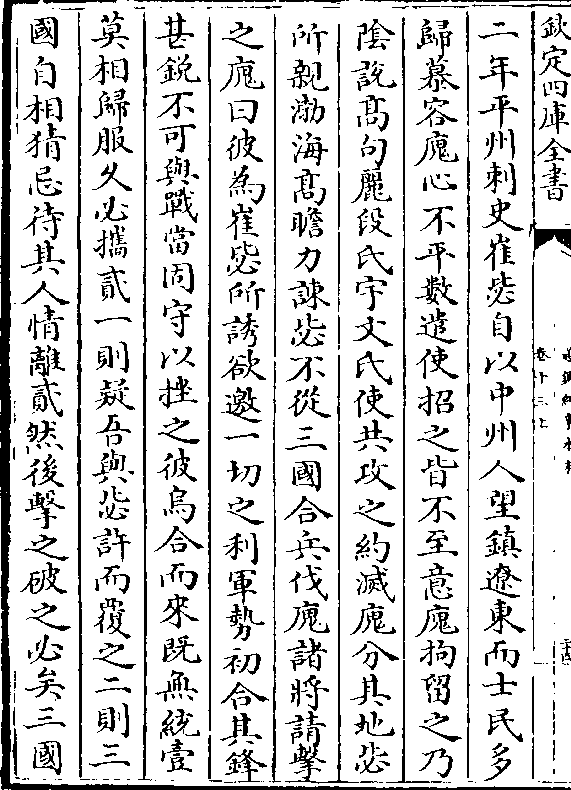 欽定四庫全書
卷十三上
二年平州刺史崔毖自以中州人望鎮遼東而士民多
歸慕容廆心不平數遣使招之皆不至意廆拘留之乃
陰説髙句麗段氏宇文氏使共攻之約滅廆分其地毖
所親渤海髙瞻力諫毖不從三國合兵伐廆諸將請擊
之廆曰彼為崔毖所誘欲邀一切之利軍勢初合其鋒
甚鋭不可與戰當固守以挫之彼烏合而來既無統壹
莫相歸服久必攜貳一則疑吾與毖許而覆之二則三
國自相猜忌待其人情離貳然後擊之破之必矣三國